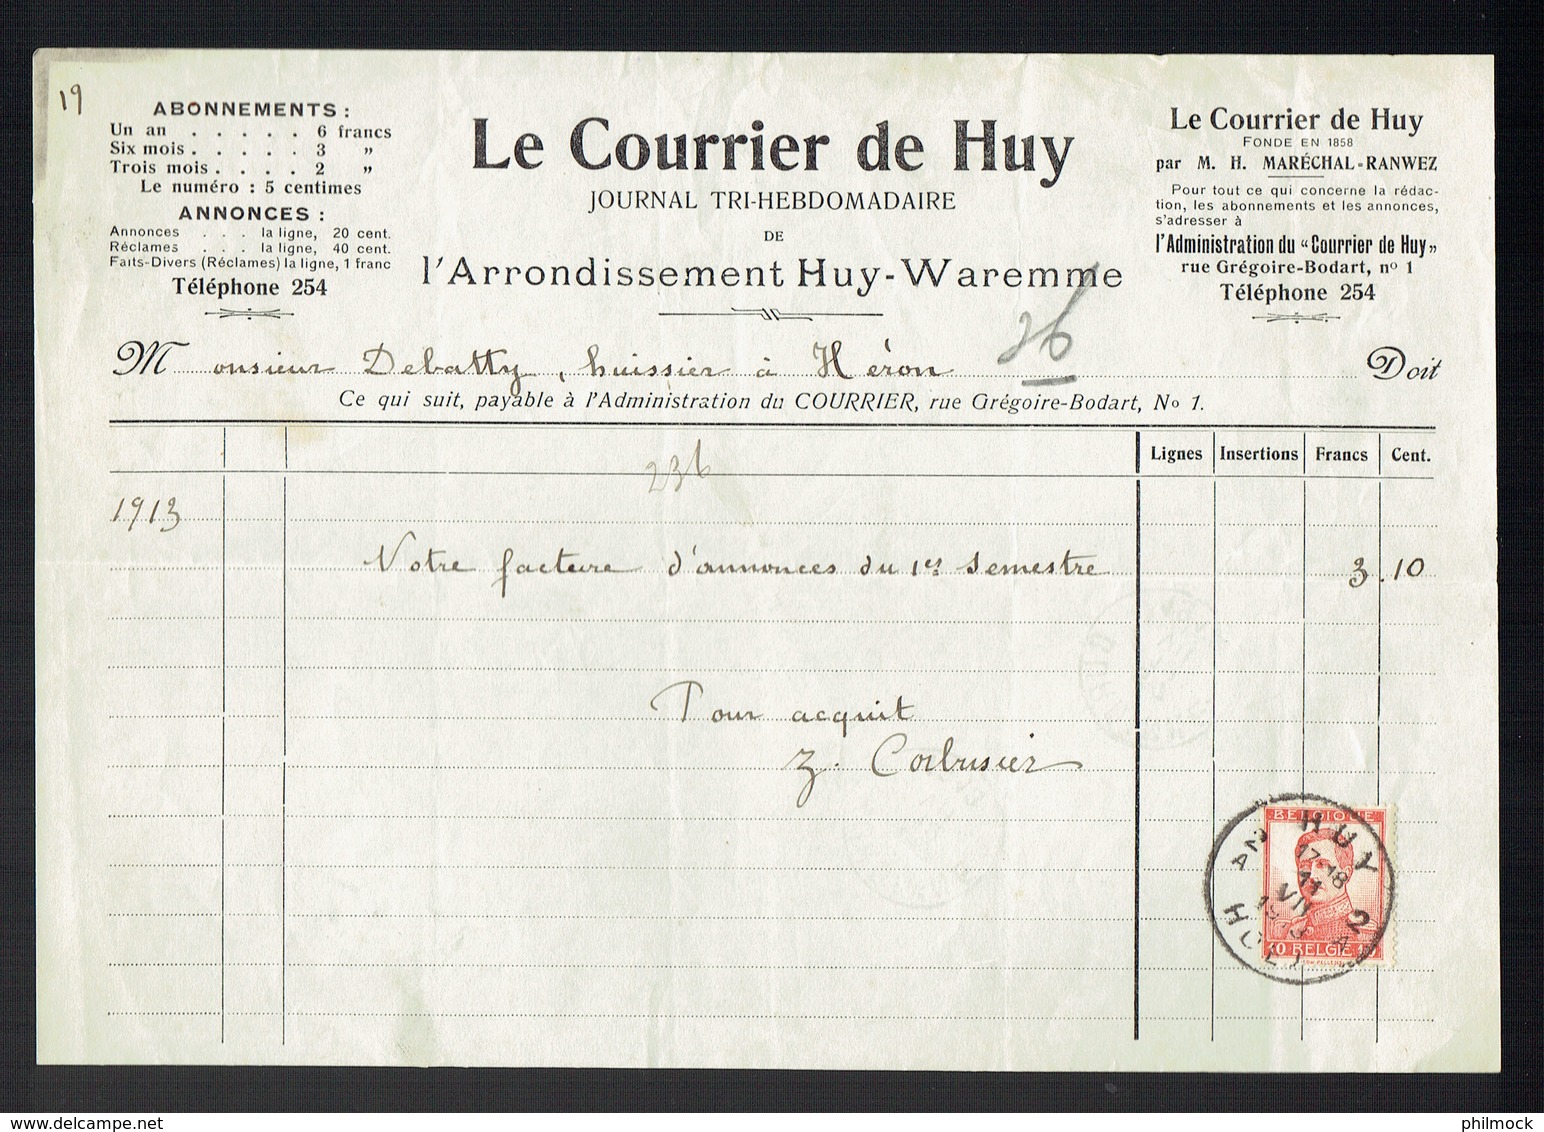 19
ABONNEMENTS :
Un an . . . . . 6 francs
Six mois . . . . . 3 „
Trois mois . . . . 2 „
Le numéro : 5 centimes
ANNONCES :
Annonces . . . la ligne, 20 cent.
Réclames . . . la ligne, 40 cent.
Faits-Divers (Réclames) la ligne, 1 franc
Téléphone 254
Le Courrier de Huy
JOURNAL TRI-HEBDOMADAIRE
DE
l'Arrondissement Huy-Waremme
Le Courrier de Huy
FONDÉ EN 1858
par M. H. MARÉCHAL-RANWEZ
Pour tout ce qui concerne la rédac-
tion, les abonnements et les annonces,
s'adresser à
l'Administration du “Courrier de Huy„
rue Grégoire-Bodart, nº 1
Téléphone 254
Monsieur Debatty, huissier à Héron Doit
Ce qui suit, payable à l'Administration du COURRIER, rue Grégoire-Bodart, No 1.
Lignes Insertions Francs Cent.
236
1913
Notre facture d'annonces du 1er semestre 3.10
Pour acquit
Z. Corbusier
BELGIQUE
10 BELGIE 10
HUY 2
17-18
11
VII
1913
HOEI
www.delcampe.net
philmock